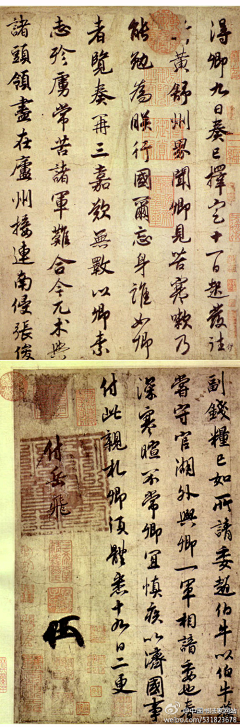 得卿九日奏已擇定十一日起發往
蘄黃舒州界聞卿見苦寒嗽乃
能勉為朕行國爾忘身誰如卿
者覽奏再三嘉歎無斁以卿素
志殄虜常苦諸軍難合今兀朮與
諸頭領盡在廬州接連南侵張俊
副錢糧已如所請委趙伯牛以伯牛
嘗守官湖外與卿一軍相諳委也春
深寒暄不常卿宜慎疾以濟國事
付此親札卿須體悉十九日二更
付岳飛